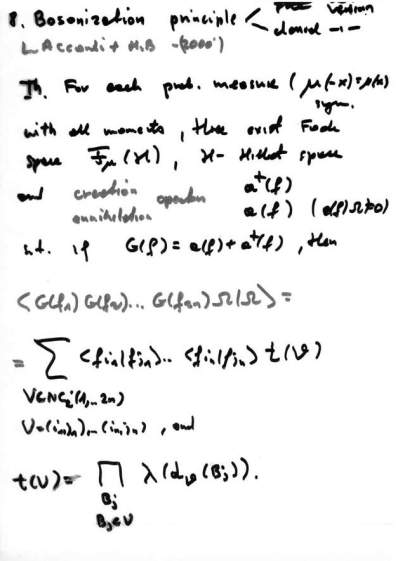 8. Bosonization principle < free version
classical -"-
L. Accardi + M.B -(2000')
Th. For each prob. measure ( μ(-x)=μ(x)
symm.
with all moments, there exist Fock
space F_μ(H), H- Hilbert space
and creation operators a⁺(f)
annihilation a(f) (a(f)Ω=0)
s.t. if G(f) = a(f)+a⁺(f), then
<G(f₁)G(f₂)... G(f₂ₙ)Ω|Ω> =
= Σ <f_{i₁}|f_{j₁}>.. <f_{iₙ}|f_{jₙ}> t(V)
V∈NC₂(1,..2n)
V=(i₁,j₁)...(iₙ,jₙ), and
t(V)= ∏ λ(d_V(B_j)).
B_j
B_j∈V